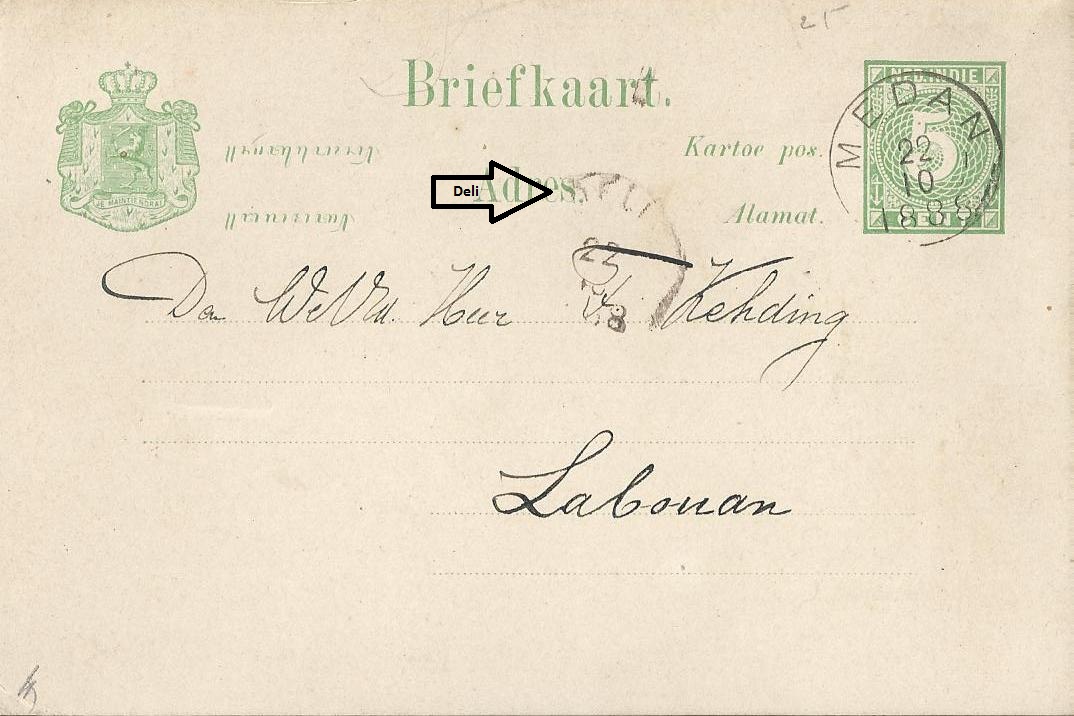 25
Briefkaart.
NED. INDIE
5
CENT
MEDAN
22
10
1888
Kartoe pos.
JE MAINTIENDRAI
Deli
Adres.
DELI
Alamat.
22
Den WelEd. Heer F. Kehding
8
Labouan